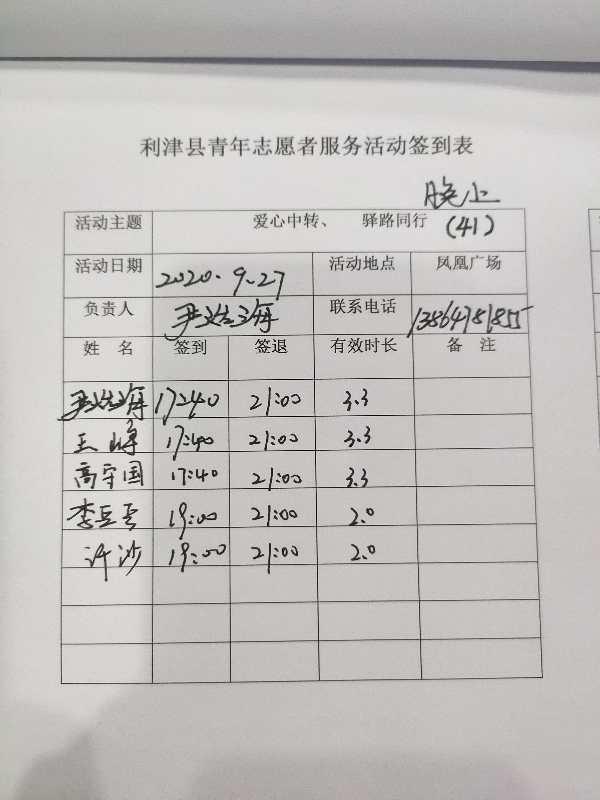 利津县青年志愿者服务活动签到表
晚上
活动主题 爱心中转、 驿路同行 (41)
活动日期 2020.9.27 活动地点 凤凰广场
负责人 联系电话 13864781855
姓 名 签到 签退 有效时长 备 注
17:40 21:00 3.3
王峰 17:40 21:00 3.3
高守国 17:40 21:00 3.3
李 19:00 21:00 2.0
许沙 19:00 21:00 2.0